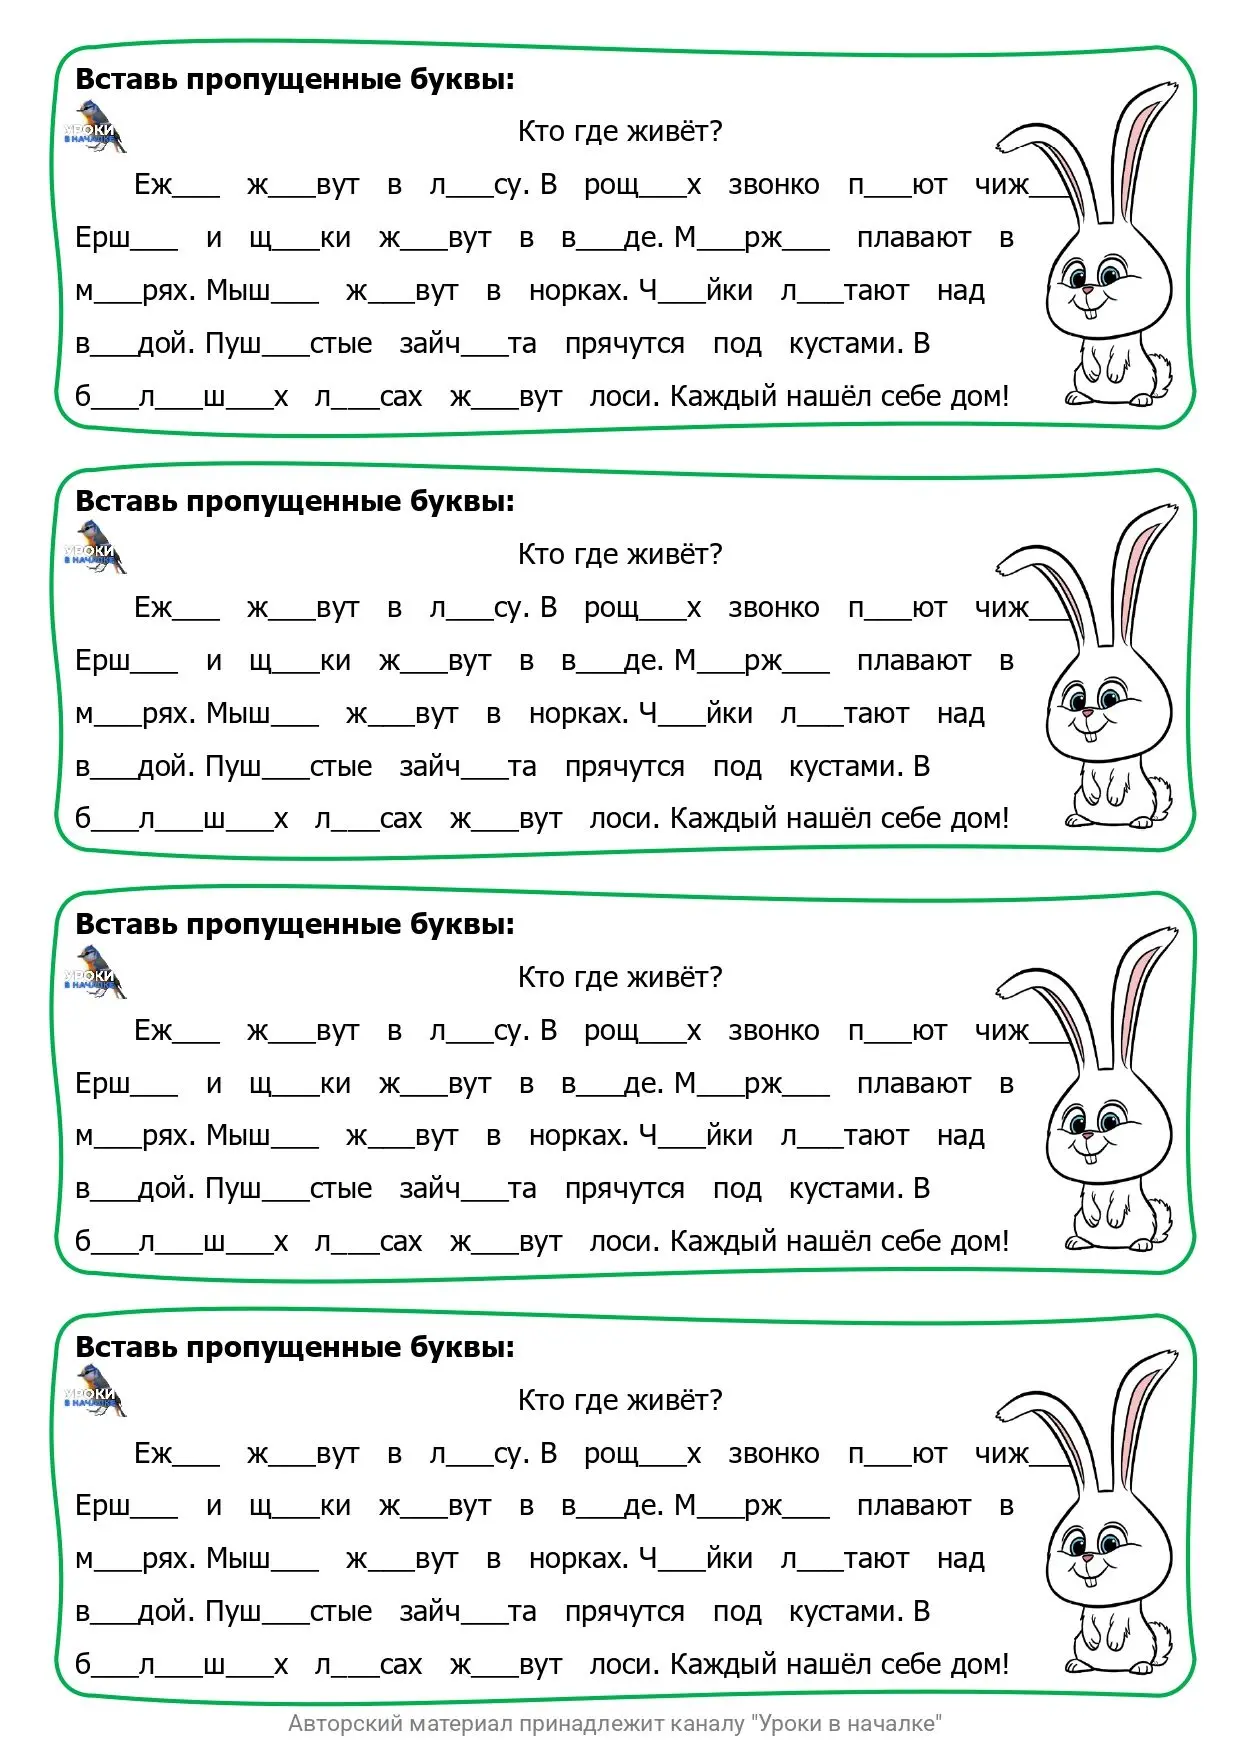 Вставь пропущенные буквы:
УРОКИ
В НАЧАЛКЕ
Кто где живёт?
Еж___ ж___вут в л___су. В рощ___х звонко п___ют чиж___
Ерш___ и щ___ки ж___вут в в___де. М___рж___ плавают в
м___рях. Мыш___ ж___вут в норках. Ч___йки л___тают над
в___дой. Пуш___стые зайч___та прячутся под кустами. В
б___л___ш___х л___сах ж___вут лоси. Каждый нашёл себе дом!
Вставь пропущенные буквы:
УРОКИ
В НАЧАЛКЕ
Кто где живёт?
Еж___ ж___вут в л___су. В рощ___х звонко п___ют чиж___
Ерш___ и щ___ки ж___вут в в___де. М___рж___ плавают в
м___рях. Мыш___ ж___вут в норках. Ч___йки л___тают над
в___дой. Пуш___стые зайч___та прячутся под кустами. В
б___л___ш___х л___сах ж___вут лоси. Каждый нашёл себе дом!
Вставь пропущенные буквы:
УРОКИ
В НАЧАЛКЕ
Кто где живёт?
Еж___ ж___вут в л___су. В рощ___х звонко п___ют чиж___
Ерш___ и щ___ки ж___вут в в___де. М___рж___ плавают в
м___рях. Мыш___ ж___вут в норках. Ч___йки л___тают над
в___дой. Пуш___стые зайч___та прячутся под кустами. В
б___л___ш___х л___сах ж___вут лоси. Каждый нашёл себе дом!
Вставь пропущенные буквы:
УРОКИ
В НАЧАЛКЕ
Кто где живёт?
Еж___ ж___вут в л___су. В рощ___х звонко п___ют чиж___
Ерш___ и щ___ки ж___вут в в___де. М___рж___ плавают в
м___рях. Мыш___ ж___вут в норках. Ч___йки л___тают над
в___дой. Пуш___стые зайч___та прячутся под кустами. В
б___л___ш___х л___сах ж___вут лоси. Каждый нашёл себе дом!
Авторский материал принадлежит каналу "Уроки в началке"